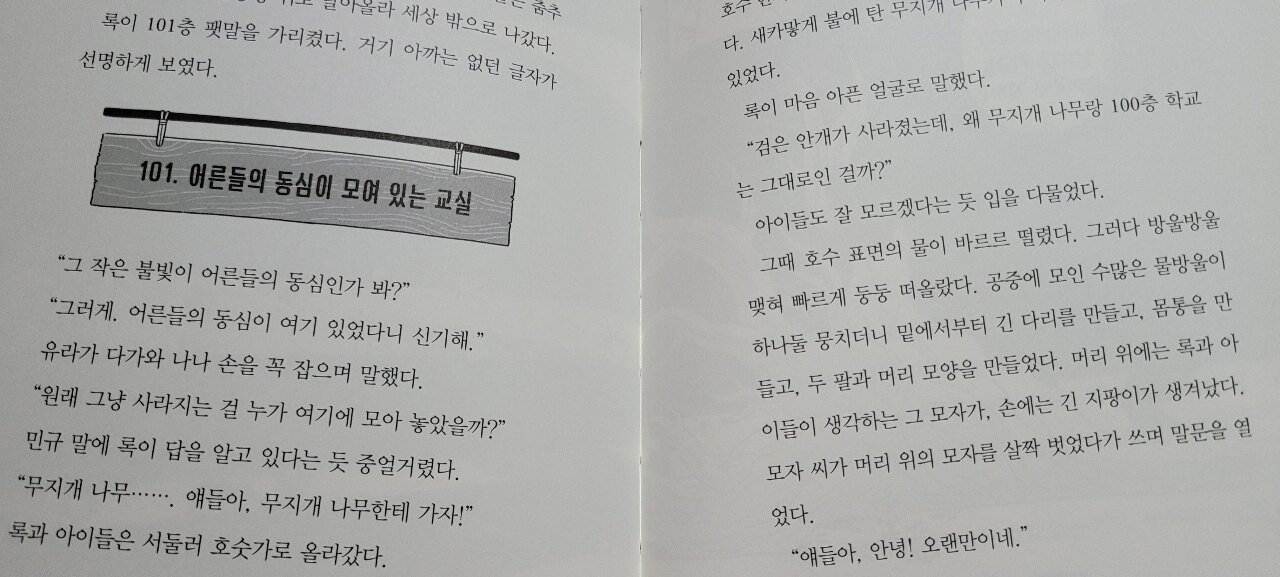 춤추
위로 날아올라 세상 밖으로 나갔다.
록이 101층 팻말을 가리켰다. 거기 아까는 없던 글자가
선명하게 보였다.
101. 어른들의 동심이 모여 있는 교실
“그 작은 불빛이 어른들의 동심인가 봐?”
“그러게. 어른들의 동심이 여기 있었다니 신기해.”
유라가 다가와 나나 손을 꼭 잡으며 말했다.
“원래 그냥 사라지는 걸 누가 여기에 모아 놓았을까?”
민규 말에 록이 답을 알고 있다는 듯 중얼거렸다.
“무지개 나무……. 얘들아, 무지개 나무한테 가자!”
록과 아이들은 서둘러 호숫가로 올라갔다.
호수
다. 새카맣게 불에 탄 무지개 나무가
있었다.
록이 마음 아픈 얼굴로 말했다.
“검은 안개가 사라졌는데, 왜 무지개 나무랑 100층 학교
는 그대로인 걸까?”
아이들도 잘 모르겠다는 듯 입을 다물었다.
그때 호수 표면의 물이 바르르 떨렸다. 그러다 방울방울
맺혀 빠르게 둥둥 떠올랐다. 공중에 모인 수많은 물방울이
하나둘 뭉치더니 밑에서부터 긴 다리를 만들고, 몸통을 만
들고, 두 팔과 머리 모양을 만들었다. 머리 위에는 록과 아
이들이 생각하는 그 모자가, 손에는 긴 지팡이가 생겨났다.
모자 씨가 머리 위의 모자를 살짝 벗었다가 쓰며 말문을 열
었다.
“얘들아, 안녕! 오랜만이네.”